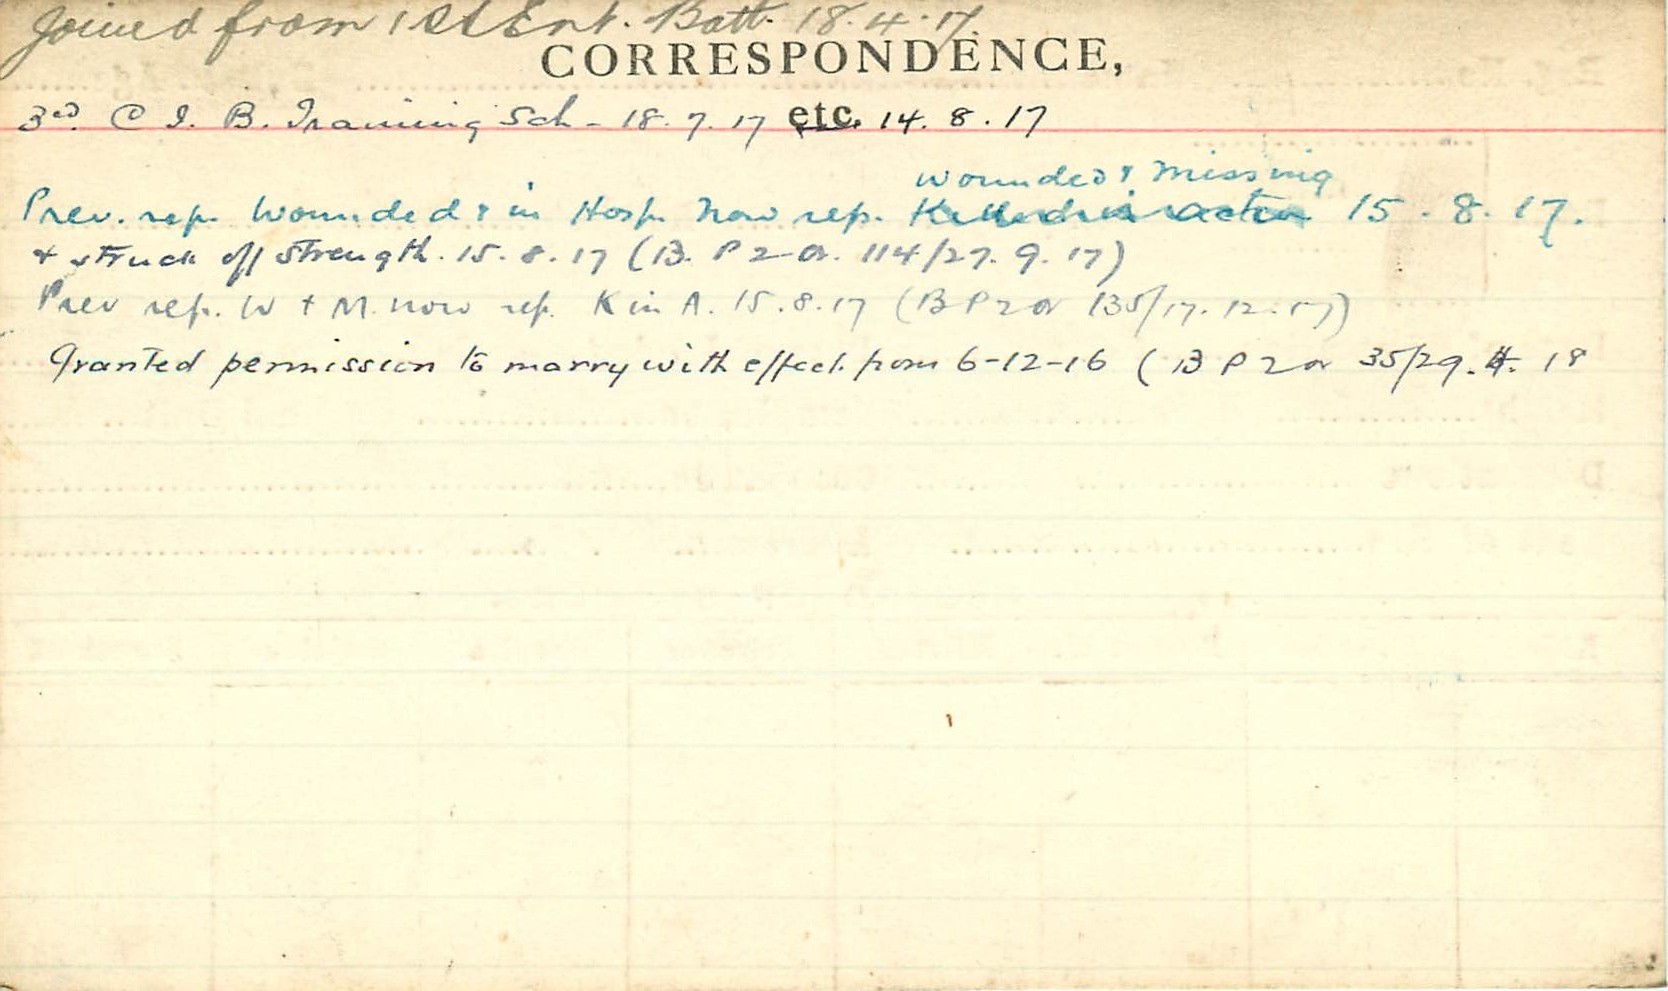 Joined from 1st Ent. Batt. 18.4.17
CORRESPONDENCE,
3rd C I. B. Training Sch - 18.7.17 etc. 14.8.17
wounded & missing
Prev. rep. wounded & in Hosp. now rep. Killed in action 15.8.17.
& struck off strength. 15.8.17 (B. P 2 Or. 114/27.9.17)
Prev rep. W & M. now rep. K in A. 15.8.17 (B P 2 Or 135/17.12.17)
Granted permission to marry with effect from 6-12-16 (B P 2 Or 35/29.4.18